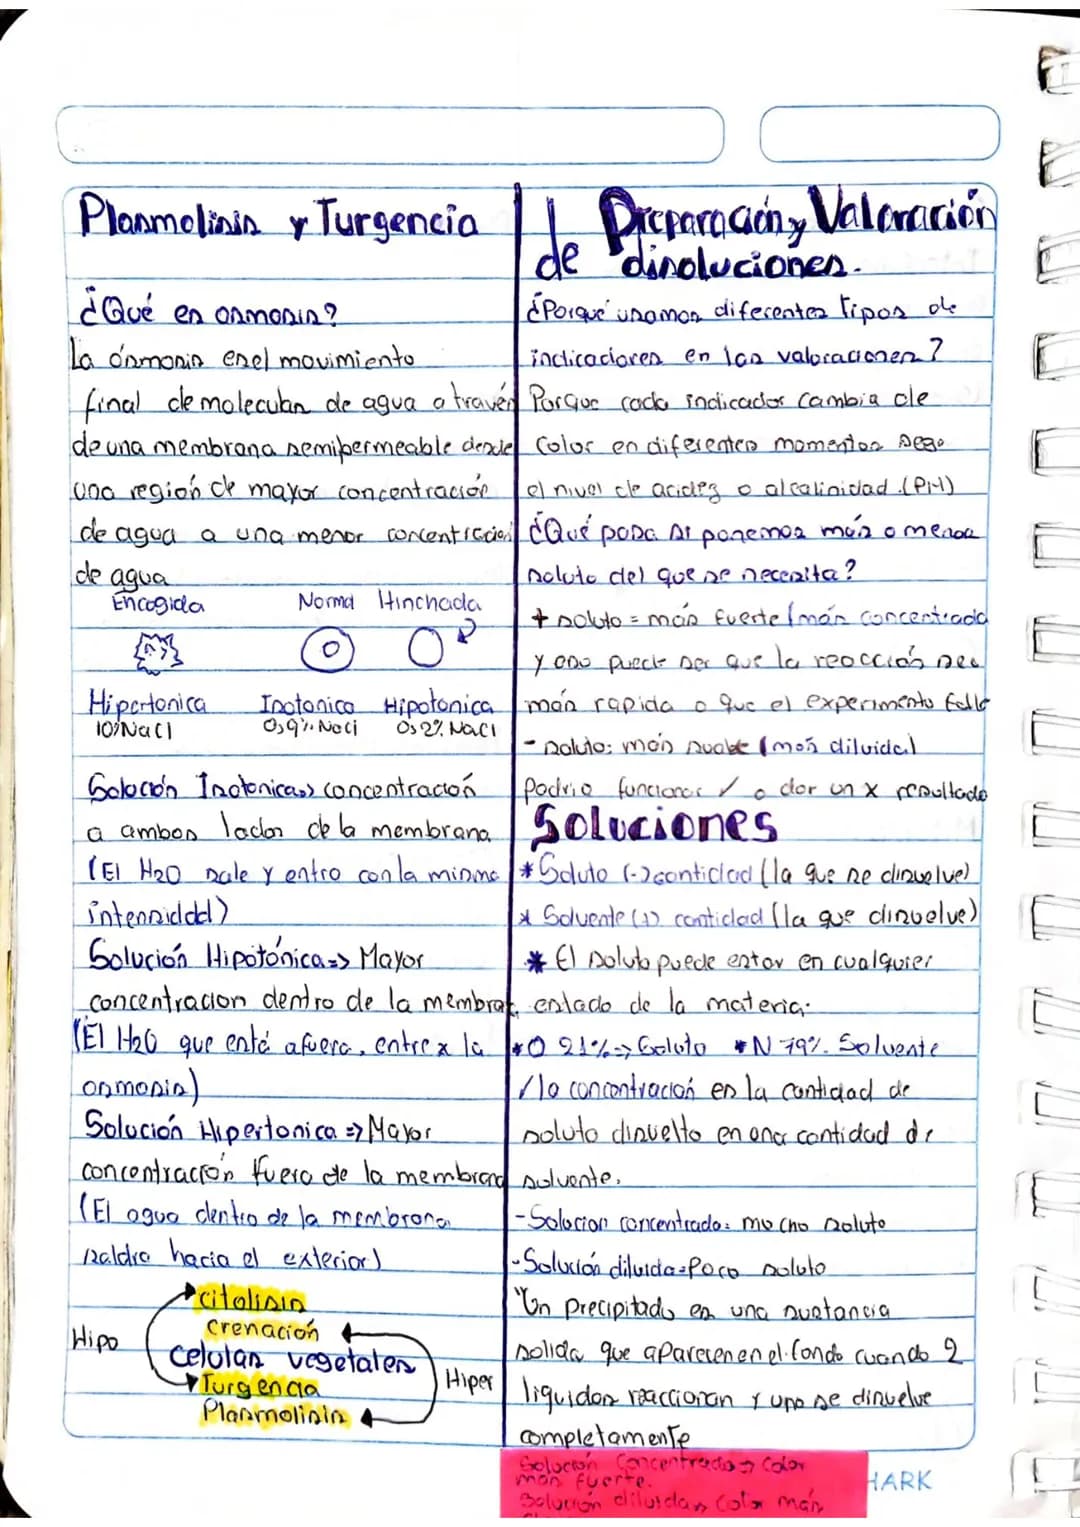 Plasmolisis y Turgencia
¿Qué es osmosis?
La ósmosis es el movimiento
final de moleculas de agua a través
de una membrana semipermeable desde
una región de mayor concentración
de agua a una menor concentración
de agua
Encogida Normal Hinchada
Hipertonica Isotonica Hipotonica
10% NaCl 0,9% NaCl 0,2% NaCl
Solución Isotonica => concentración
a ambos lados de la membrana
(El H2O sale y entra con la misma
intensidad)
Solución Hipotónica => Mayor
concentracion dentro de la membrana
(El H2O que está afuera, entre x la
osmosis)
Solución Hipertonica => Mayor
concentración fuera de la membrana
(El agua dentro de la membrana
saldra hacia el exterior)
citolisis
crenación
Hipo
celulas vegetales
Hiper
Turgencia
Plasmolisis
Preparación y Valoración
de disoluciones.
¿Porqué usamos diferentes tipos de
indicadores en las valoraciones?
Porque cada indicador cambia de
color en diferentes momentos
el nivel de acidez o alcalinidad (PH)
¿Qué pasa si ponemos más o menos
soluto del que se necesita?
+ soluto = más fuerte (más concentrado
y eso puede ser que la reacción sea
más rapida o que el experimento falle
- soluto: más suave (más diluida)
podria funcionar ✓ o dar un x resultado
Soluciones
* Soluto (-) cantidad (la que se disuelve)
* Solvente (+) cantidad (la que disuelve)
* El soluto puede estar en cualquier
estado de la materia.
* O 21% => Soluto * N 79% Solvente
/ la concentración es la cantidad de
soluto disuelto en una cantidad de
solvente.
- Solucion concentrada: mucho soluto
- Solución diluida = Poco soluto
"Un precipitado es una sustancia
solida que aparecen en el fondo cuando 2
liquidos reaccionan y uno se disuelve
completamente
Solución Concentrada => Color
más fuerte.
Solución diluida => Color más
HARK